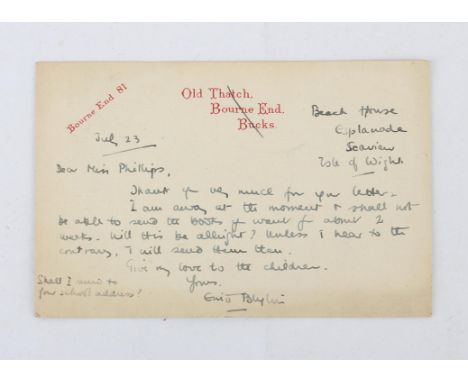 Bourne End 81
Old Thatch,
Bourne End,
Bucks.
Beach House
Esplanade
Seaview
Isle of Wight
July 23
Dear Miss Phillips,
Thank you very much for your letter.
I am away at the moment & shall not
be able to send the books you want for about 2
weeks. Will this be allright? Unless I hear to the
contrary, I will send them then.
Give my love to the children.
Yours,
Enid Blyton
Shall I send to
your school address?